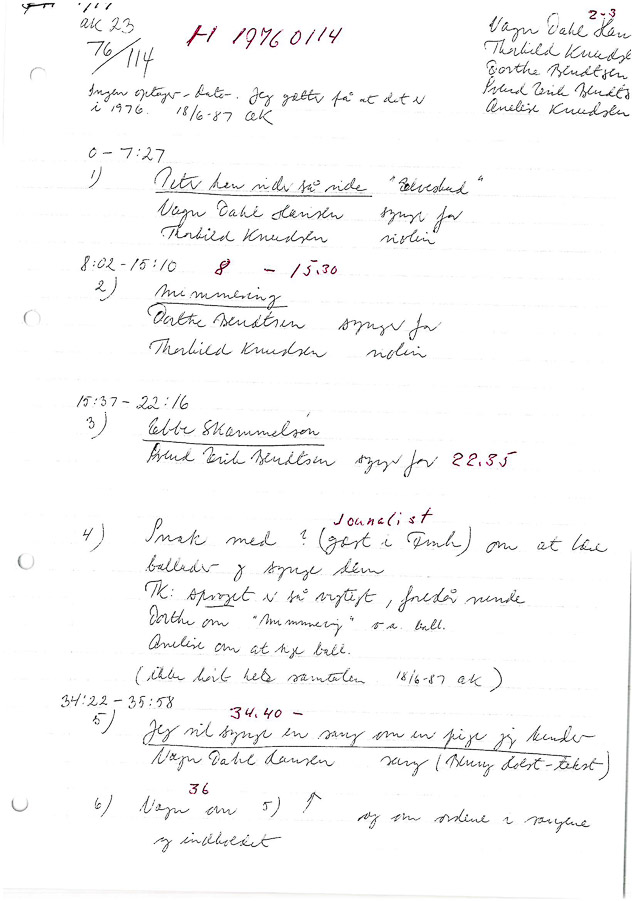 2-3
AK 23
76/114
H 19760114
Vagn Dahl Han
Thorkild Knudse
Dorthe Bendtsen
Svend Erik Bendts
Anelise Knudsen
Ingen optager-dato-. Jeg gætter på at det er
i 1976. 18/6-87 AK
0-7:27
1) Peter hen ride så ride "Sølvesbud"
Vagn Dahl Hansen synger for
Thorkild Knudsen violin
8:02-15:10 8 - 15.30
2) Mimmering
Dorthe Bendtsen synger for
Thorkild Knudsen violin
15:37-22:16
3) Ebbe Skammelsøn
Svend Erik Bendtsen synger for 22.35
Journalist
4) Snak med ? (gæst i ) om at lære
ballader og synge dem
TK: sproget er så vigtigt,
Dorthe om "Mimmering" o.a. ball.
Anelise om at ball.
(ikke hørt hele samtalen 18/6-87 AK)
34:22-35:58
34.40 -
5) Jeg vil synge en sang om en pige jeg kender
Vagn Dahl Hansen sang (Benny Holst-tekst)
36
6) Vagn om 5) ↑ og om ordene i sangene
og indholdet